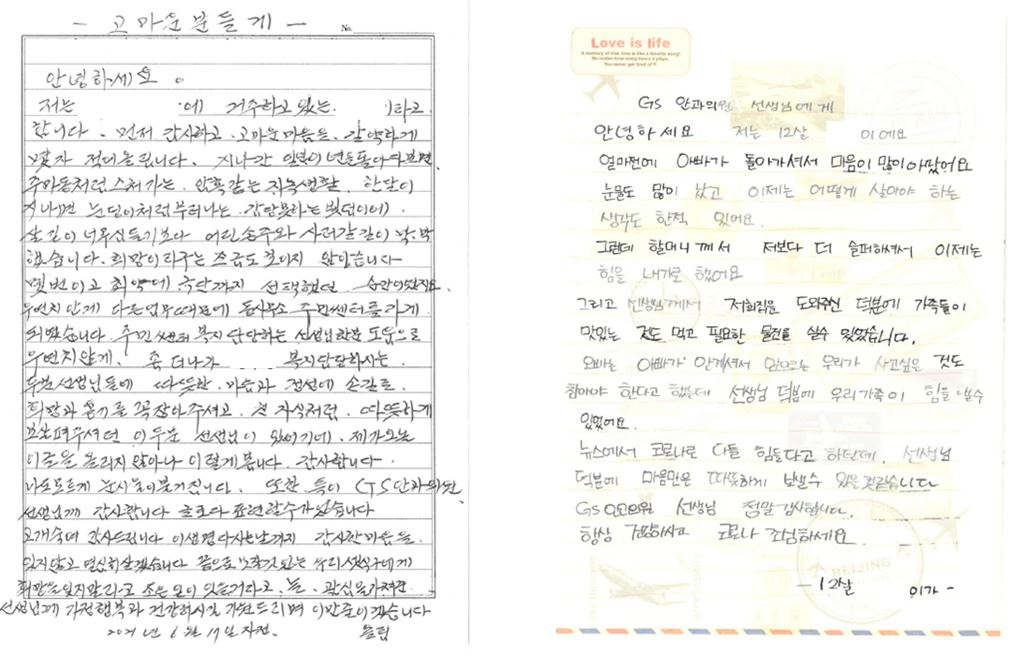 - 고마운분들게 -
No.
안녕하세요 。
저는 에 거주하고 있는 타고
합니다. 먼저 감사하고. 고마운마음을. 간략하게
몇자 적어올립니다. 지나간
주마등처럼 스쳐가는. 한달이
지나가면 눈덩이처럼
살길이 너무 힘들기보다 어린손주와 살길이 막막
했습니다. 희망이라구는 조금도 보이지 않았습니다
몇번이고 최악에 극단까지 선택했던 순간이었지요
우연치안게 다른업무때문에 동사무소 주민쎈터를가게
되었습니다. 주민쎈터 복지담당하는 선생님한분 도움으로
우연치않게. 좀 더나가 복지담당하시는
두분선생님들에 따뜻한 마음과 정성에 손길로
희망과 용기를 꼭잡아주셔고. 친 자식처럼. 따뜻하게
보살펴주셔던 이두분 선생님이 있어기에. 제가오늘
이글을 올리지 않아나 이렇게봅니다. 감사합니다.
나도모르게 눈시울이붉거집니다. 또한 특이 GS안과의원
선생님께 감사합니다 글로다 표현할수가없습니다
고개숙여 감사드립니다 이생명다사는날까지 감사한마음을
잊지않고 열심히살겠습니다 끝으로 우리식구에게
희망을잊지말라고 좋은일이 있을거라고. 늘. 관심을가져준
선생님께 가정행복과 건강하시길 기원드리며 이만줄이겠습니다
2021년 6월 19일 올림
Love is life
A memory of true love is like a favorite song!
No matter how many times it plays,
You never get tired of it
GS 안과의원 선생님에게
안녕하세요 저는 12살 이에요
얼마전에 아빠가 돌아가셔서 마음이 많이 아팠어요
눈물도 많이 났고 이제는 어떻게 살아야 하는
생각도 한적 있어요.
그런데 할머니께서 저보다 더 슬퍼하셔서 이제는
힘을 내기로 했어요
그리고 선생님께서 저희집을 도와주신 덕분에 가족들이
맛있는 것도 먹고 필요한 물건을 살수 있었습니다.
오빠는 아빠가 안계셔서 우리가 사고싶은 것도
참아야 한다고 했는데 선생님 덕분에 우리가족이 힘을 낼수
있었어요.
뉴스에서 코로나로 다들 힘들다고 하던데. 선생님
덕분에 마음만은 따뜻하게 보낼수 있을것같습니다
GS 안과의원 선생님 정말 감사합니다.
항상 건강하시고 코로나 조심하세요.
BEIJING
- 12살 이가 -